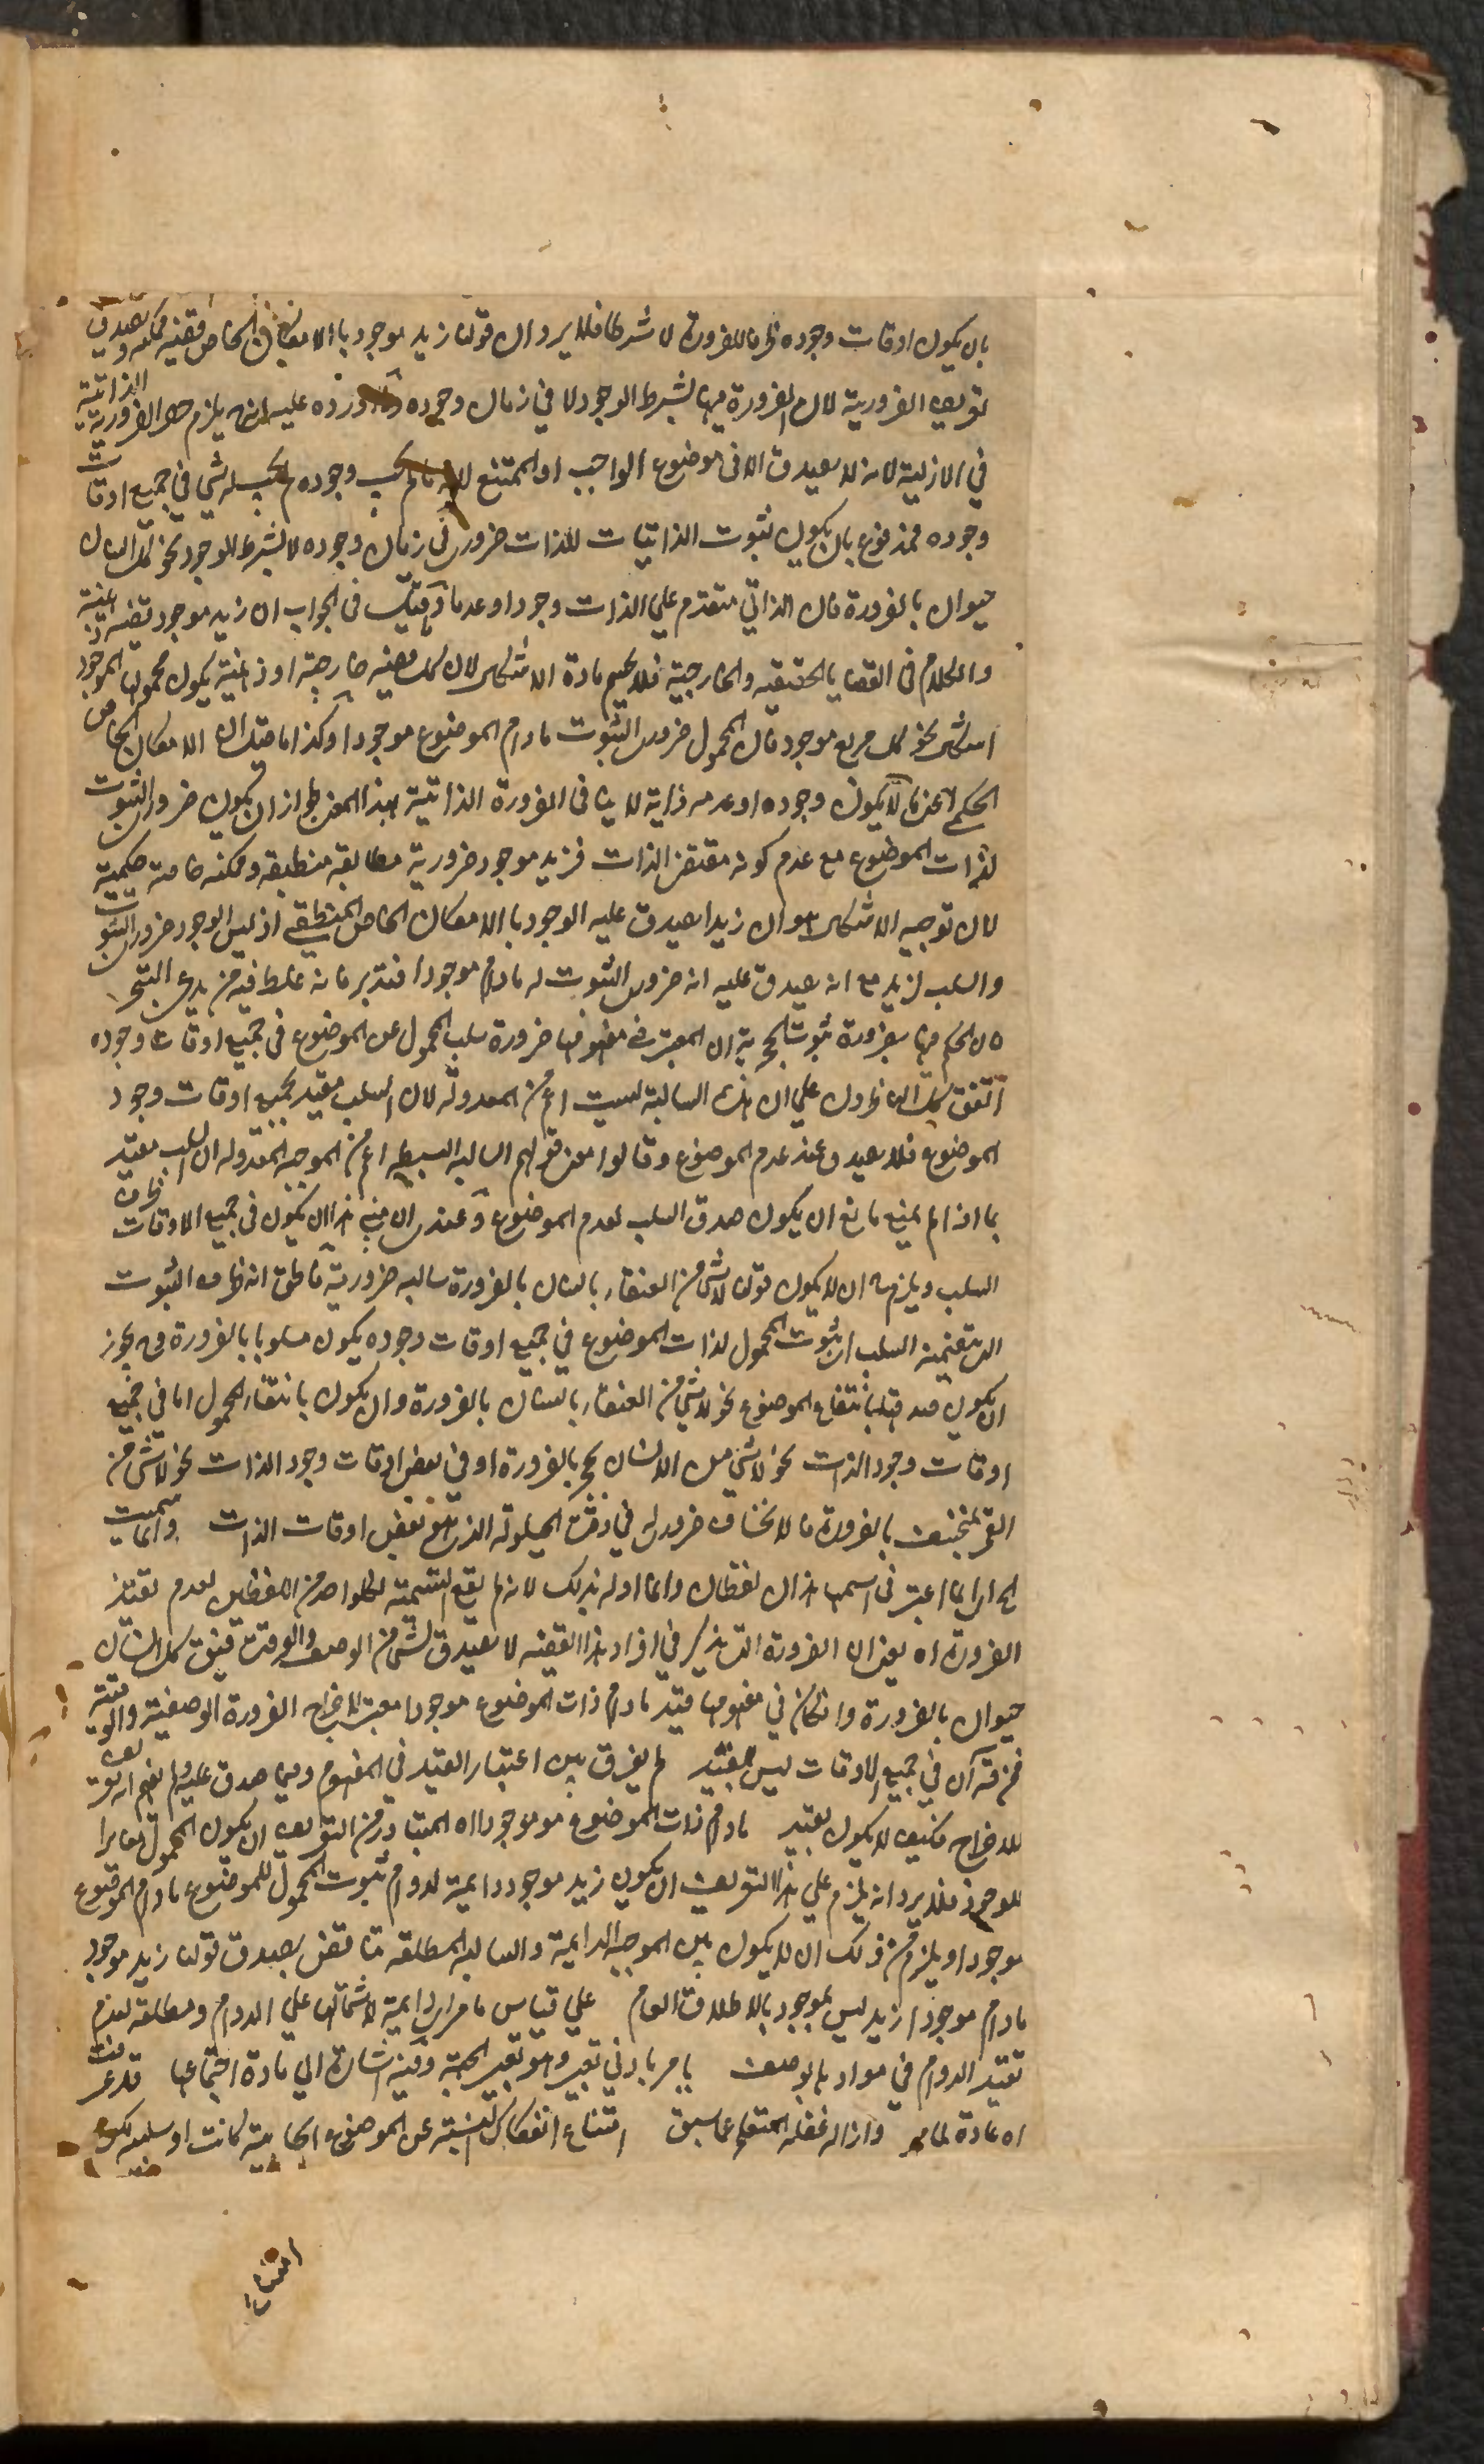 بان يكون اوقات وجوده ظرفا للضرورة لا شرطا فلا يرد ان قولنا زيد موجود بالامكان الخاص قضية ممكنة ويصدق
تعريف الضرورية لان الضرورة فيها بشرط الوجود لا في زمان وجوده وما اورده عليه انه يلزم حصر الضرورية الذاتية
في الازلية لانه لا يصدق الا في موضوع الواجب او الممتنع لانه ما لم يجب وجوده لم يجب له شي في جميع اوقات
وجوده فمدفوع بان يكون ثبوت الذاتيات للذات ضروري في زمان وجوده لا بشرط الوجود نحو كل انسان
حيوان بالضرورة فان الذاتي متقدم علي الذات وجودا وعدما وما قيل في الجواب ان زيد موجود قضية ذهنية
والكلام في القضايا الحقيقية والخارجية فلا يحسم مادة الاشكال لان كل قضية خارجية او ذهنية يكون محمولها الموجود
اشكل نحو كل مربع موجود فان المحمول ضروري الثبوت مادام الموضوع موجودا وكذا ما قيل ان الامكان الخاص
الحكمي اعني ما لا يكون وجوده او عدمه ذاتية لا ينافي الضرورة الذاتية بهذا المعني لجواز ان يكون ضروري الثبوت
لذات الموضوع مع عدم كونه مقتضي الذات فزيد موجود ضرورية مطلقة منطقية وممكنة خاصة حكمية
لان توجيه الاشكال هو ان زيدا يصدق عليه الوجود بالامكان الخاص المنطقي اذ ليس الوجود ضروري الثبوت
والسلب لزيد مع انه يصدق عليه انه ضروري الثبوت له مادام موجودا فتدبر فانه غلط فيه من يدعي التبحر
ه ان الحكم فيها بضرورة ثبوت الحجرية ان المعتبر في مفهومها ضرورة سلب المحمول عن الموضوع في جميع اوقات وجوده
اتفق الناظرون علي ان هذه السالبة ليست اعم من المعدولة لان السلب مقيد بجميع اوقات وجود
الموضوع فلا يصدق عند عدم الموضوع وقالوا معني قولهم السالبة البسيطة اعم من الموجبة المعدولة ان السلب مقيد
بما اذا لم يمنع مانع ان يكون صدق السلب لعدم الموضوع وعندي ان مبني هذا ان يكون في جميع الاوقات ظرف
السلب ويلزمه ان لا يكون قولنا لا شي من العنقاء بانسان بالضرورة سالبة ضرورية مطلقة انه ظرف الثبوت
الذي يتضمنه السلب اي ثبوت المحمول لذات الموضوع في جميع اوقات وجوده يكون مسلوبا بالضرورة وح يجوز
ان يكون صدقها بانتفاء الموضوع نحو لا شي من العنقاء بانسان بالضرورة وان يكون بانتفاء المحمول اما في جميع
اوقات وجود الذات نحو لا شي من الانسان بحجر بالضرورة او في بعض اوقات وجود الذات نحو لا شي من
القمر بمنخسف بالضرورة فالانخساف ضروري له في وقت الحيلولة الذي هو بعض اوقات الذات وانما سميت
اي انما اعتبر في اسمها هذان لفظان وانما اوله بذلك لانه لم يقع التسمية لكل واحد من اللفظين لعدم تقييد
الضرورة اه يعني ان الضرورة التي يذكر في افراد هذا القضية لا يصدق بشي من الوصف والوقت فيقال كل انسان
حيوان بالضرورة وان كان في مفهومها قيد مادام ذات الموضوع موجودا معتبر لاخراج الضرورة الوصفية والوقتية
في جميع الاوقات ليس بقيد لم يفرق بين اعتبار القيد في المفهوم وفيما صدق عليه
للاخراج فكيف لا يكون بقيد مادام ذات الموضوع موجودا اه المتبادر من التعريف ان يكون المحمول مغايرا
للوجود فلا يرد انه يلزم علي هذا التعريف ان يكون زيد موجود دائمة لدوام ثبوت المحمول للموضوع مادام الموضوع
موجودا ويلزم من ذلك ان لا يكون بين الموجبة الدائمة والسالبة المطلقة تناقض بصدق قولنا زيد موجود
مادام موجودا زيد ليس بموجود بالاطلاق العام علي قياس ما مر اي دائمة لاشتمالها علي الدوام ومطلقة لعدم
تقييد الدوام في مواد بالوصف ما مر بادني تغيير وهو تغيير الجهة وفيه اشارة الي مادة اجتماعها قد عرفت
اه اعادة لما مر وازالة غفلة المتعلم عما سبق امتناع انفكاك النسبة عن الموضوع ايجابية كانت او سلبية
امتناع